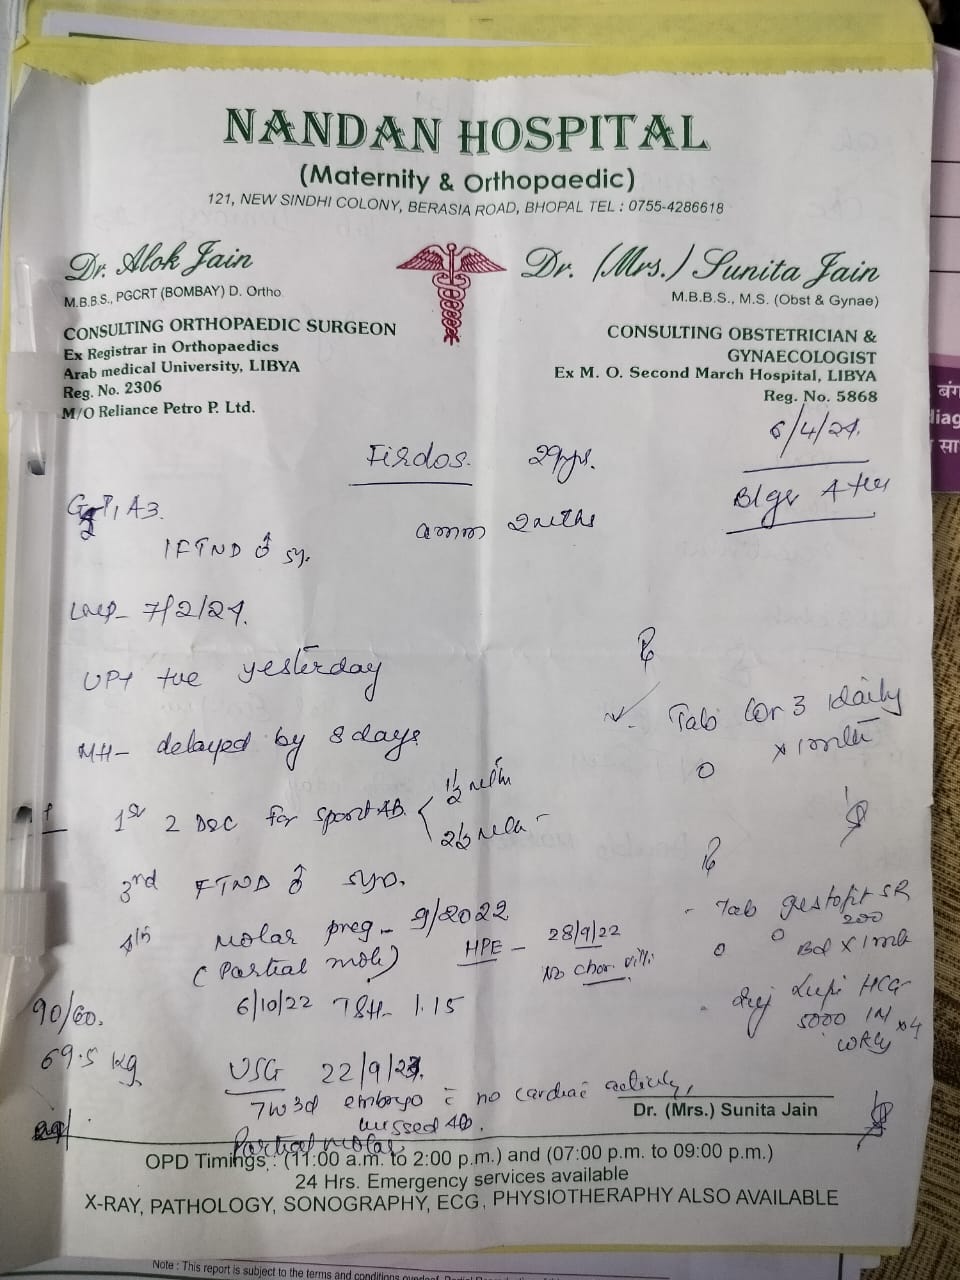 NANDAN HOSPITAL
(Maternity & Orthopaedic)
121, NEW SINDHI COLONY, BERASIA ROAD, BHOPAL TEL : 0755-4286618
Dr. Alok Jain
M.B.B.S., PGCRT (BOMBAY) D. Ortho.
CONSULTING ORTHOPAEDIC SURGEON
Ex Registrar in Orthopaedics
Arab medical University, LIBYA
Reg. No. 2306
M/O Reliance Petro P. Ltd.
Dr. (Mrs.) Sunita Jain
M.B.B.S., M.S. (Obst & Gynae)
CONSULTING OBSTETRICIAN &
GYNAECOLOGIST
Ex M. O. Second March Hospital, LIBYA
Reg. No. 5868
6/4/24.
Firdos. 29yrs.
Blgr A +ve
P1 A3.
2mths
1 FTND ♂ 5y.
LMP- 7/2/24.
UPT +ve yesterday
MH- delayed by 8 days
1st 2 D&C for spont AB. 1½ mth
2½ mth
3rd FTND ♂ 5yo.
4th Molar preg- 9/2022
(Partial mole)
HPE - 28/9/22
No chor. villi
6/10/22 TSH- 1.15
90/60.
69.5 kg
USG 22/9/23.
7w3d embryo c no cardiac activity,
missed Ab.
Partial molar
℞
Tab Cor 3 1daily
x 1mth
℞
- Tab gestofit SR
200
Bd x 1mth
- Inj Lupi HCG
5000 IM x4
wkly
Dr. (Mrs.) Sunita Jain
OPD Timings : (11:00 a.m. to 2:00 p.m.) and (07:00 p.m. to 09:00 p.m.)
24 Hrs. Emergency services available
X-RAY, PATHOLOGY, SONOGRAPHY, ECG, PHYSIOTHERAPHY ALSO AVAILABLE
Note : This report is subject to the terms and conditions